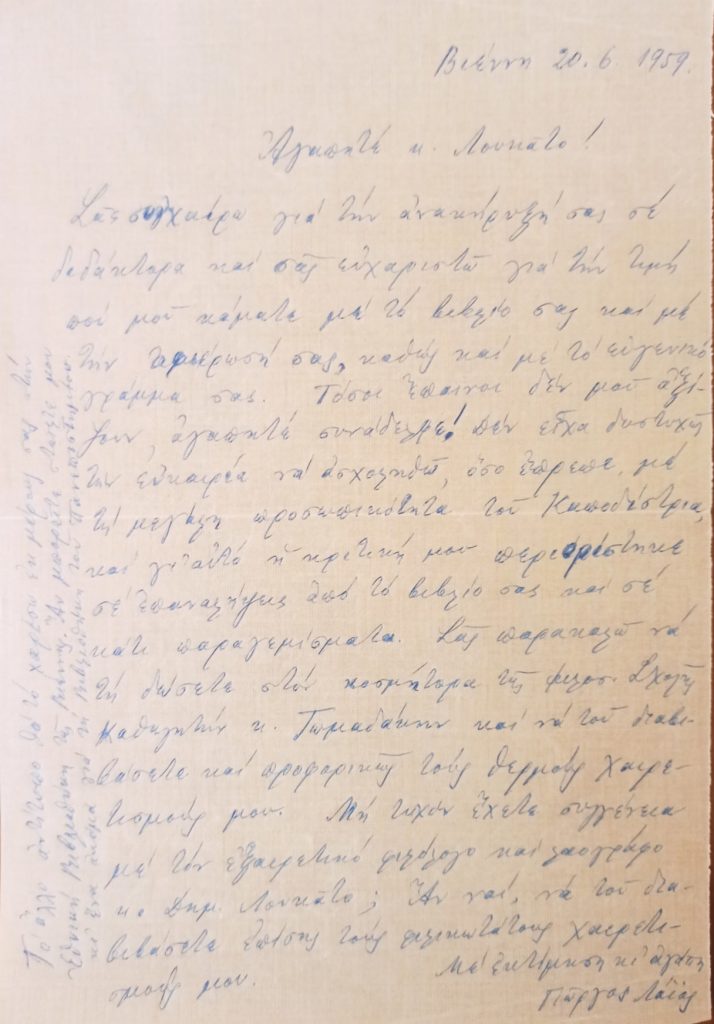 Βιέννη 20.6.1959.
Ἀγαπητέ κ. Λουκᾶτο!
Σᾶς συγχαίρω γιά τήν ἀνακήρυξή σας σέ
διδάκτορα καί σᾶς εὐχαριστῶ γιά τήν τιμή
πού μοῦ κάματε μέ τό βιβλίο σας καί μέ
τήν ἀφιέρωσή σας, καθώς καί μέ τό εὐγενικό
γράμμα σας. Τόσοι ἔπαινοι δέν μοῦ ἀξί-
ζουν, ἀγαπητέ συνάδελφε! Δέν εἶχα δυστυχῶς
τήν εὐκαιρία νά ἀσχοληθῶ, ὅσο ἔπρεπε, μέ
τή μεγάλη προσωπικότητα τοῦ Καποδίστρια,
καί γι' αὐτό ἡ κριτική μου περιορίστηκε
σέ ἐπαναλήψεις ἀπό τό βιβλίο σας καί σέ
κάτι παραγεμίσματα. Σᾶς παρακαλῶ νά
τή δώσετε στόν κοσμήτορα τῆς φιλοσ. Σχολῆς
καθηγητήν κ. Τωμαδάκην καί νά τοῦ διαβι-
βάσετε καί προφορικῶς τούς θερμούς χαιρε-
τισμούς μου. Μή τυχόν ἔχετε συγγένεια
μέ τόν ἐξαιρετικό φιλόλογο καί λαογράφο
κ. Δημ. Λουκᾶτο; Ἄν ναί, νά τοῦ δια-
βιβάσετε ἐπίσης τούς φιλικωτάτους χαιρετι-
σμούς μου.
Μέ ἐκτίμηση κι ἀγάπη
Γιῶργος Λάιος
Τό ἄλλο ἀντίτυπο θά τό χαρίσω ἐκ μέρους σας στήν
Ἐθνική Βιβλιοθήκη τῆς Βιέννης. Ἄν μπορεῖτε στεῖλτε μου
κι ἕνα ἀκόμα γιά τή Βιβλιοθήκη τοῦ Πανεπιστημίου.